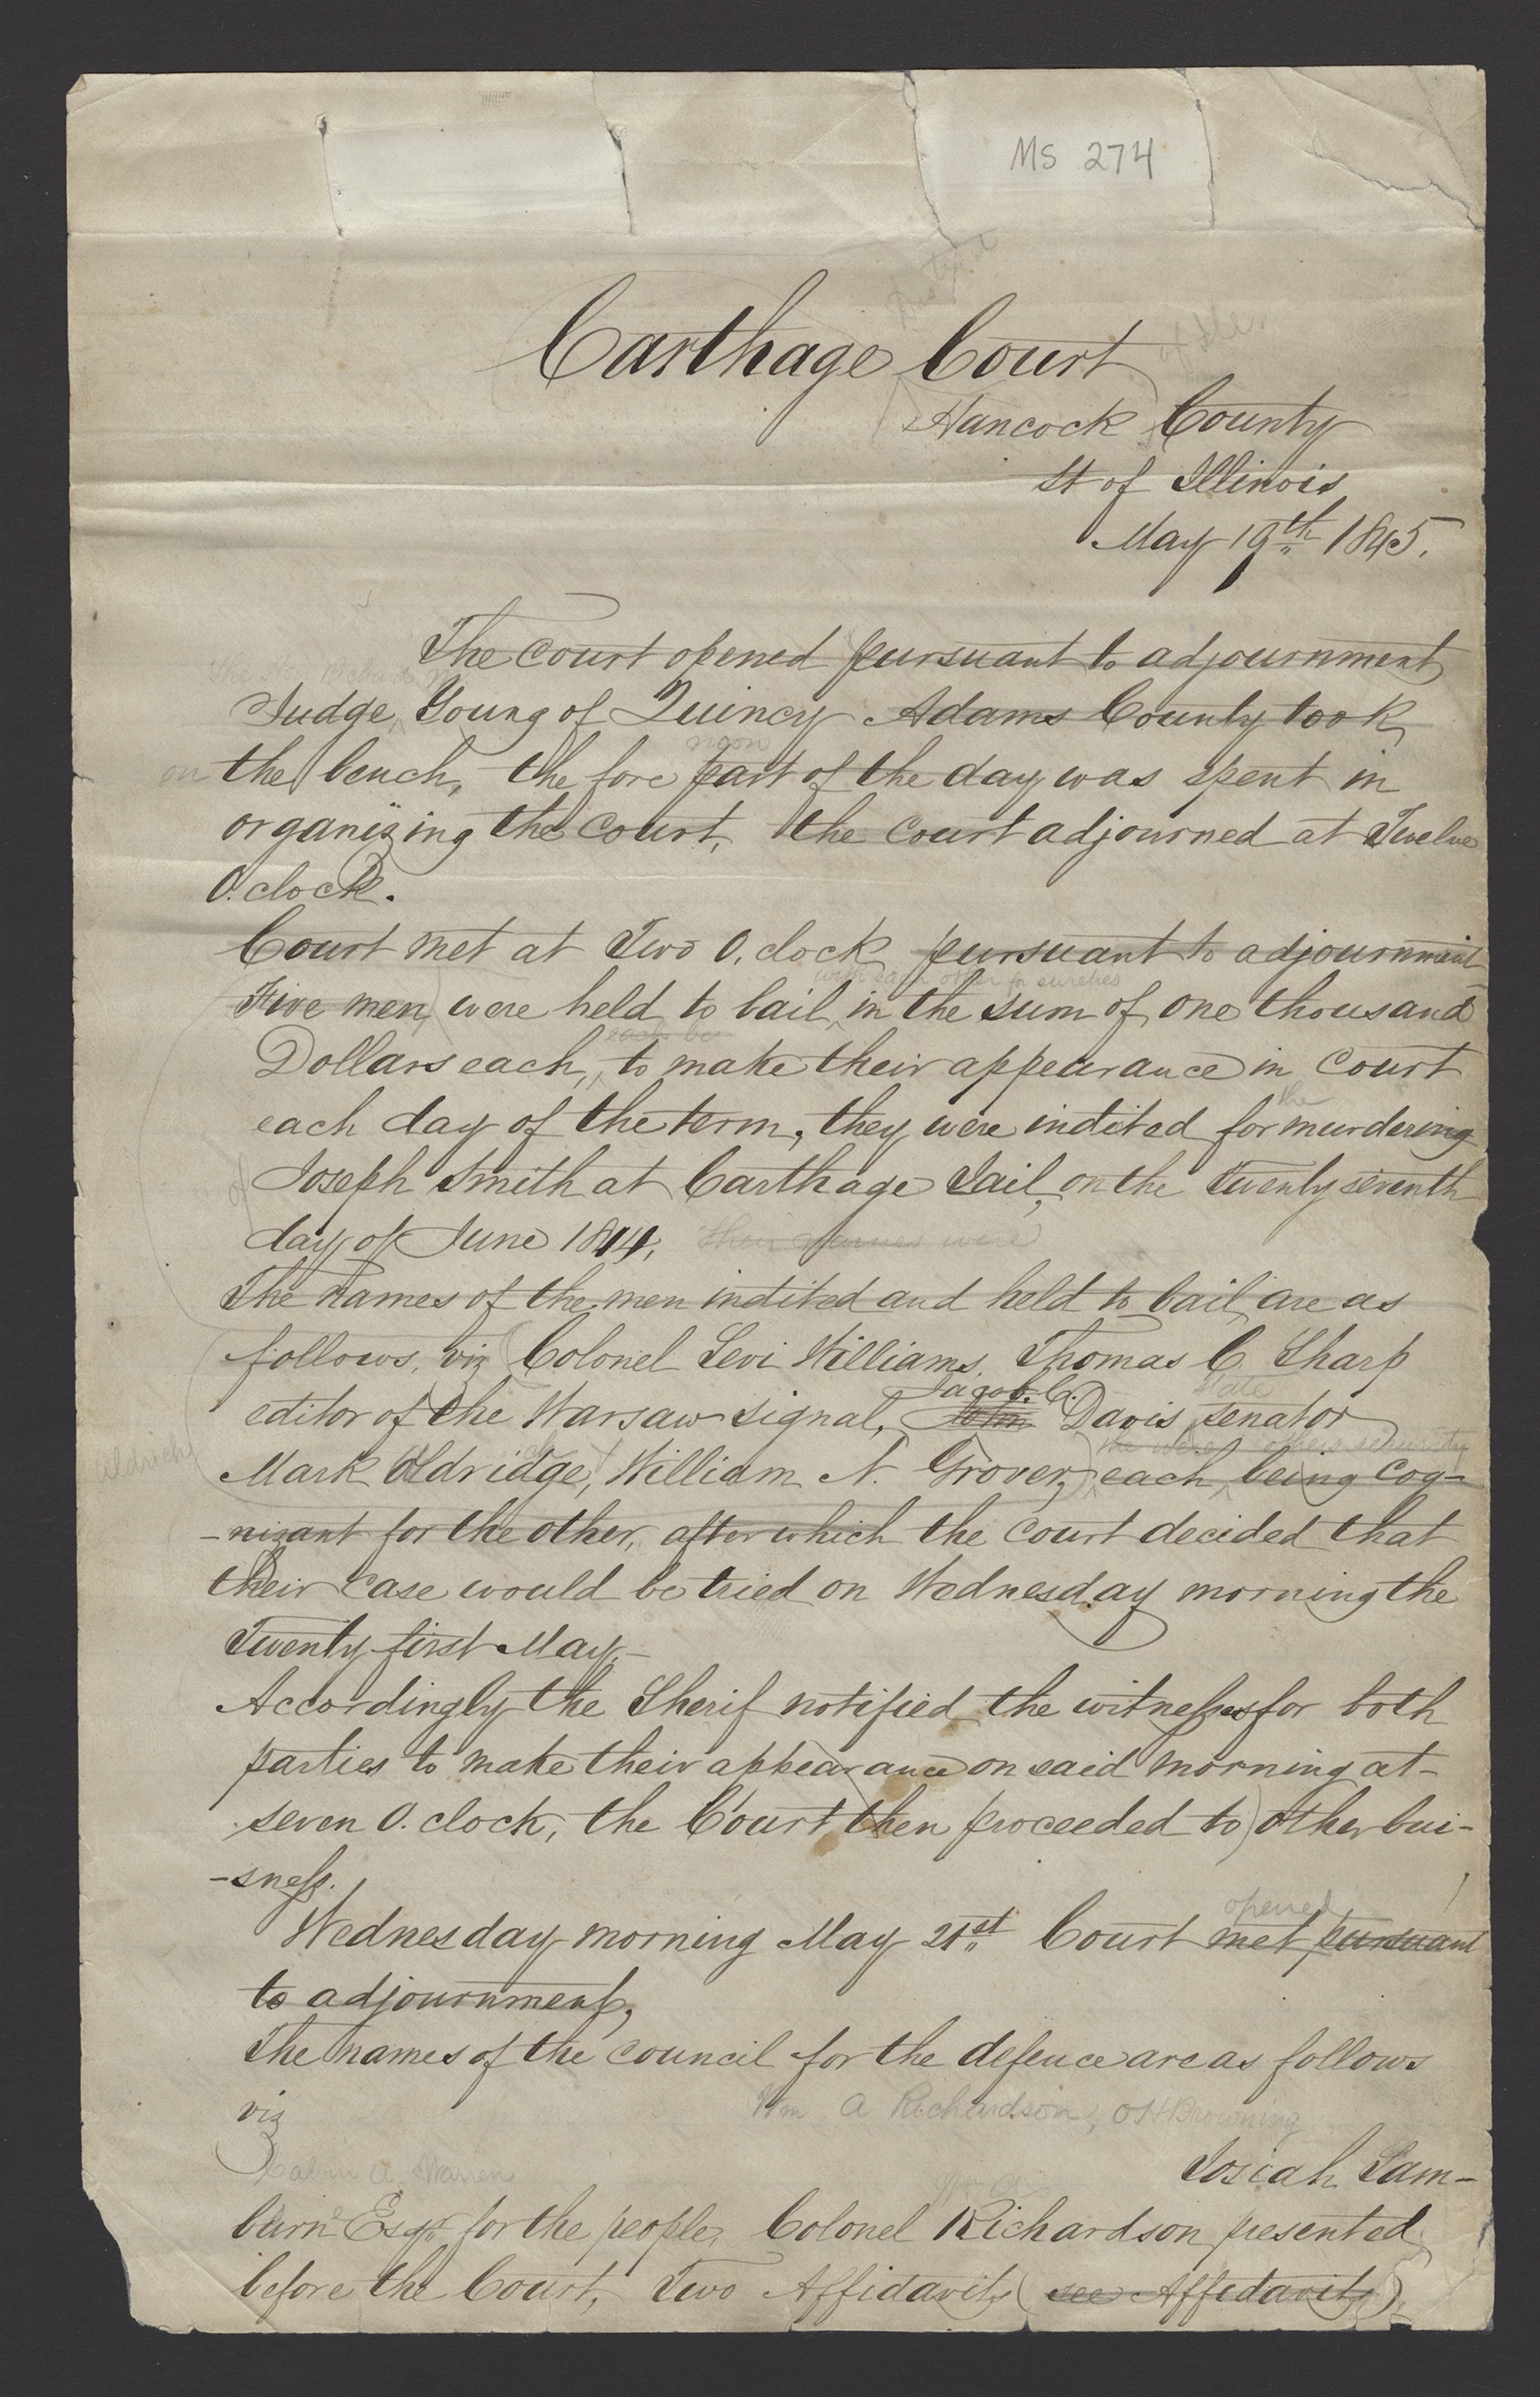 MS 274
Carthage Court
Hancock County
St of Illinois
May 19th 1845.
The court opened pursuant to adjournment
Judge Young of Quincy Adams County took
on the bench, the fore part of the day was spent in
noon
organizing the court, the court adjourned at Twelve
O.clock.
Court met at Two O,clock pursuant to adjournment
with each other for sureties
Five men were held to bail in the sum of one thousand
each be
Dollars each, to make their appearance in court
the
each day of the term, they were indited for murdering
of Joseph Smith at Carthage Jail, on the Twenty seventh
day of June 1844, their names were
The names of the men indited and held to bail are as
follows, viz Colonel Levi Williams, Thomas C. Sharp
Jacob C. State
editor of the Warsaw signal, John Davis senator
Aldrich Mark Aldridge, William N. Grover, each being cog-
-nizant for the other, after which the court decided that
their case would be tried on Wednesday morning the
Twenty first May,-
Accordingly the Sherif notified the witnesses for both
parties to make their appearance on said morning at-
seven O.clock, the Court then proceeded to other bui-
-sness.
opened
Wednesday morning May 21st Court met pursuant
to adjournment,
The names of the council for the defence are as follows
viz Wm A Richardson, OH Browning
Calvin A. Warren Josiah Lam-
burn Esqr for the people, Colonel Richardson presented
before the Court, Two Affidavits (see Affidavits),